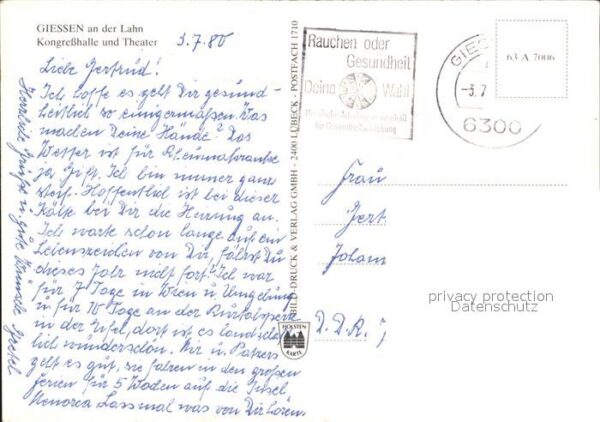 GIESSEN an der Lahn
Kongreßhalle und Theater
3.7.80
Liebe Gertrud!
Ich hoffe es geht Dir gesund-
heitlich so einigermaßen. Was
machen Deine Hände? Das
Wetter ist für Rheumakranke
ja Gift. Ich bin immer ganz
steif. Hoffentlich ist bei dieser
Kälte bei Dir die Heizung an.
Ich warte schon lange auf ein
Lebenszeichen von Dir, fährst Du
dieses Jahr nicht fort? Ich war
für 7 Tage in Wien u. Umgebung
u. für 10 Tage an der Rurtalsperre
in der Eifel, dort ist es landschaft-
lich wunderschön. Mir u.
geht es gut, sie fahren in den großen
Ferien für 5 Wochen auf die Insel
Menorca. Lass mal was von Dir hören.
Herzliche Grüße u. gute Wünsche
BILD-DRUCK & VERLAG GMBH - 2400 LÜBECK - POSTFACH 1710
HOLSTEN
KARTE
Rauchen oder
Gesundheit
Deine Wahl
für Gesundheitserziehung
GIESS
-3.7
6300
63 A 7006
Frau
Gert
Johan
D.D.R.
privacy protection
Datenschutz